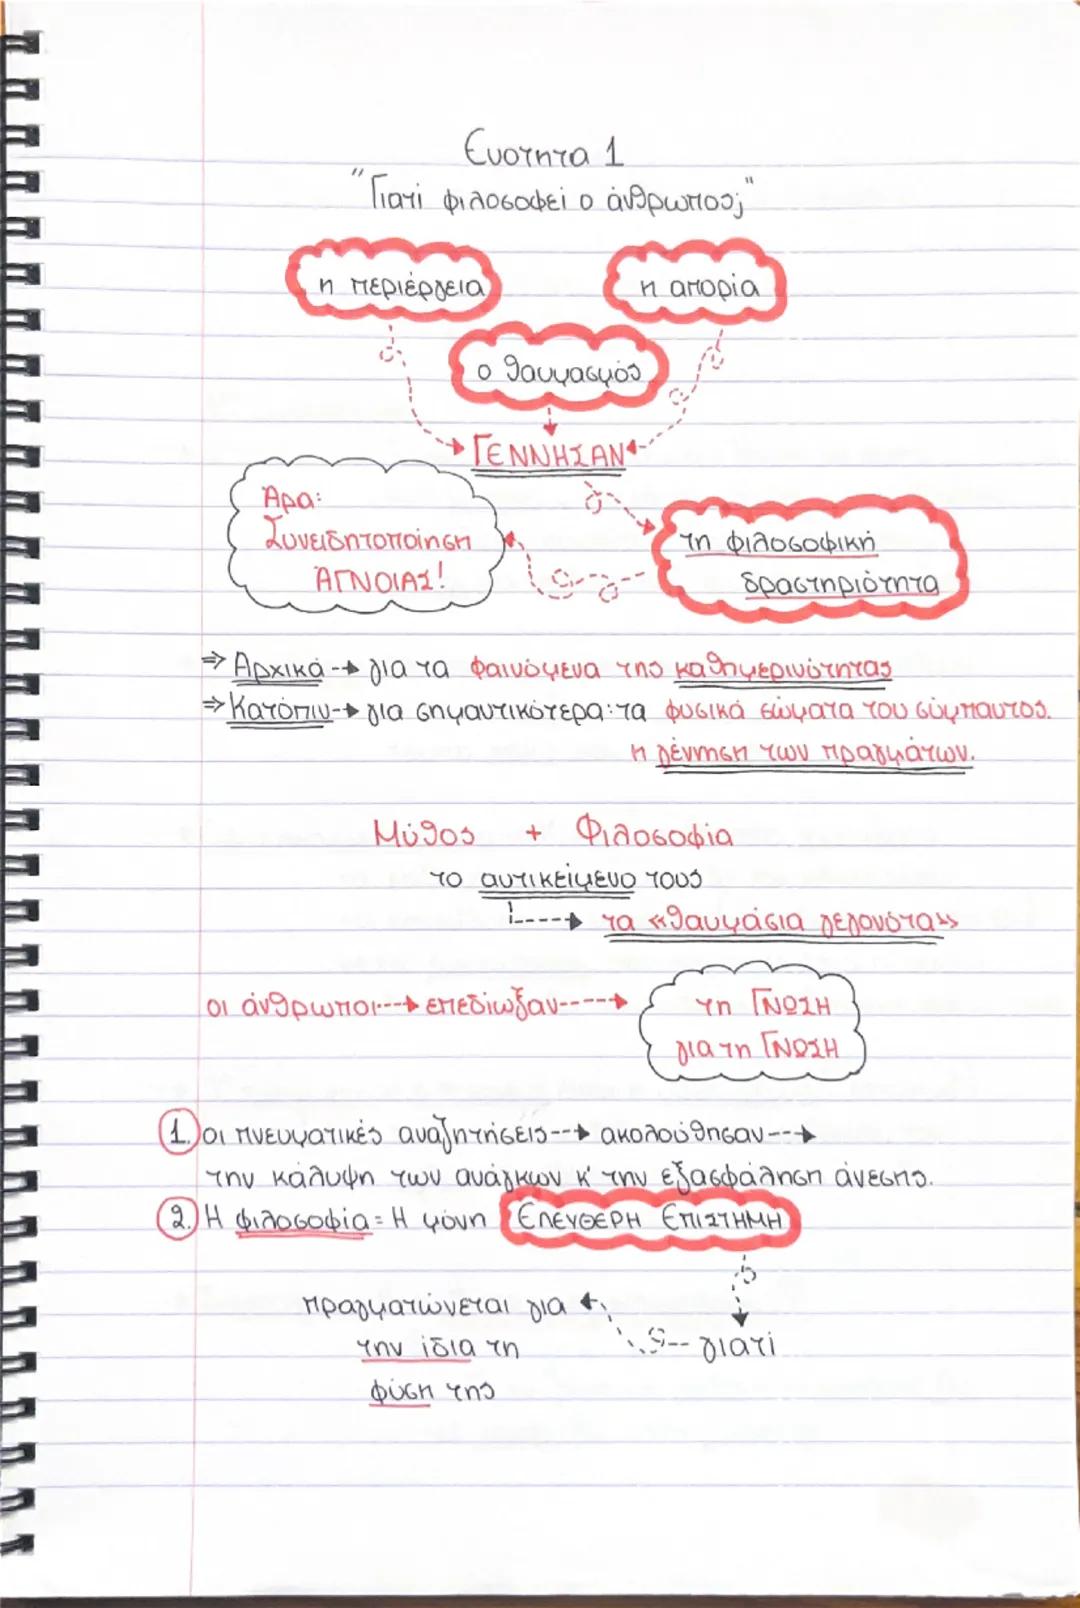 Ενότητα 1
"Γιατί φιλοσοφεί ο άνθρωπος;"
η περιέργεια
η απορία
ο θαυμασμός
ΓΕΝΝΗΣΑΝ
Άρα:
Συνειδητοποίηση
ΆΓΝΟΙΑΣ!
τη φιλοσοφική
δραστηριότητα
⇒ Αρχικά --→ για τα φαινόμενα της καθημερινότητας
⇒ Κατόπιν --→ για σημαντικότερα: τα φυσικά σώματα του σύμπαντος.
η γέννηση των πραγμάτων.
Μύθος + Φιλοσοφία
το αντικείμενο τους
τα «θαυμάσια γεγονότα»
οι άνθρωποι ---→ επεδίωξαν -----→
τη ΓΝΩΣΗ
για τη ΓΝΩΣΗ
1. οι πνευματικές αναζητήσεις --→ ακολούθησαν --→
την κάλυψη των ανάγκων κ' την εξασφάληση άνεσης.
2. Η φιλοσοφία = Η μόνη ΕΛΕΥΘΕΡΗ ΕΠΙΣΤΗΜΗ
πραγματώνεται για
την ίδια τη
φύση της
γιατί